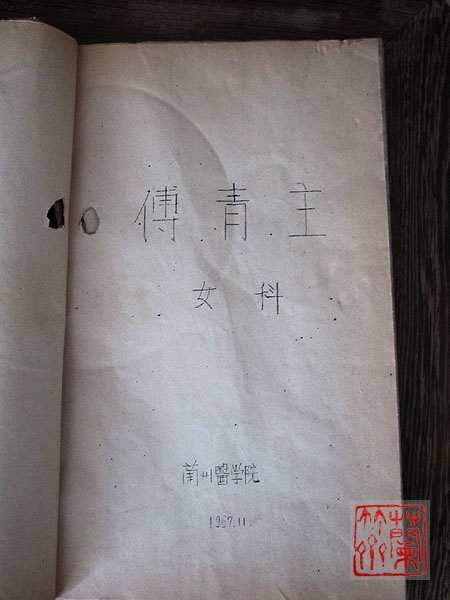 傅青主
女科
蘭州醫学院
1967.11.